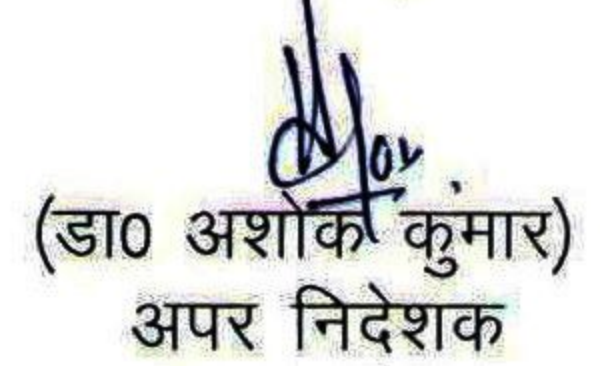 (डा0 अशोक कुमार)
अपर निदेशक